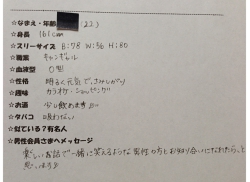 ☆なまえ・年齢 (22)
☆身長 161cm
☆スリーサイズ B:78 W:56 H:80
☆職業 キャンギャル
☆血液型 O型
☆性格 明るく元気でさみしがり
☆趣味 カラオケ・ショッピング
☆お酒 少し飲めます
☆タバコ 吸わない
☆似ている？有名人
☆男性会員さまへメッセージ
楽しいお話で一緒に笑えるような男性の方とお知り合いになれたら、と
思います